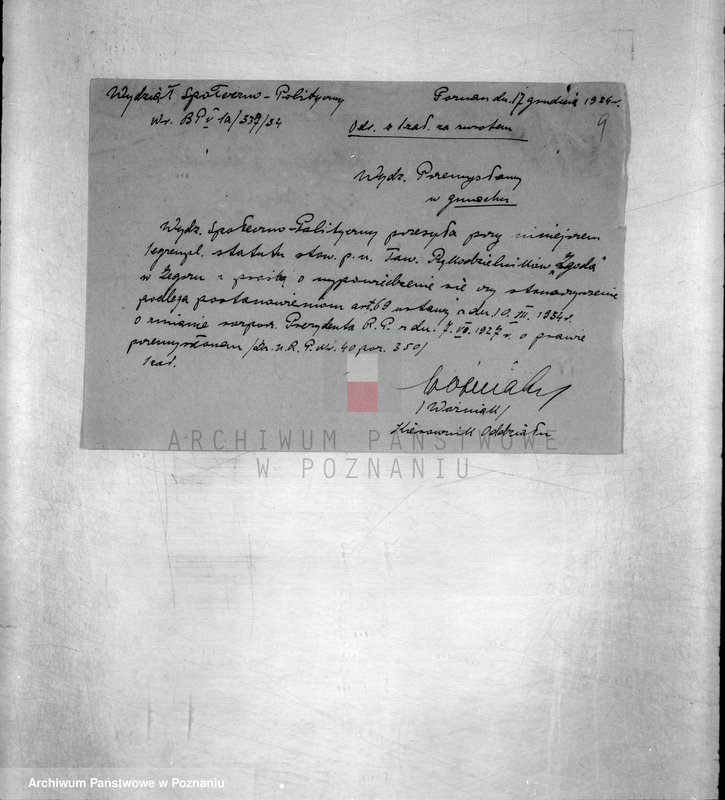 Wydział Społeczno-Polityczny
Poznań dn. 17 grudnia 1934 r.
Nr. BP V 1a/337/34
Odr. z zał. za zwrotem
9
Wydz. Przemysłowy
w gmachu
Wydz. Społeczno-Polityczny przesyła przy niniejszem
1 egzempl. statutu stow. p. n. Tow. Rękodzielników "Zgoda"
w Zegrzu z prośbą o wypowiedzenie się czy stowarzyszenie
podlega postanowieniom art. 69 ustawy z dn. 10. III. 1934 r.
o zmianie rozpor. Prezydenta R. P. z dn. 7. VI. 1927 r. o prawie
przemysłowem /Dz. U. R. P. Nr. 40 poz. 350/
1 zał.
/Woźniak/
Kierownik Oddziału
ARCHIWUM PAŃSTWOWE
W POZNANIU
Archiwum Państwowe w Poznaniu